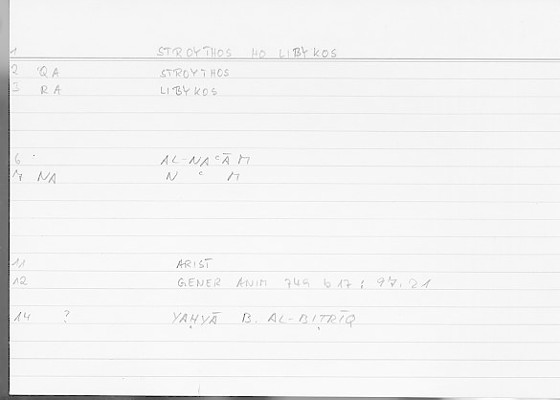 1 STROYTHOS HO LIBYKOS
2 QA STROYTHOS
3 RA LIBYKOS
6 AL-NAʿĀM
7 NA N ʿ M
11 ARIST
12 GENER ANIM 749 b 17 ; 97, 21
14 ? YAḤYĀ B. AL-BIṬRĪQ